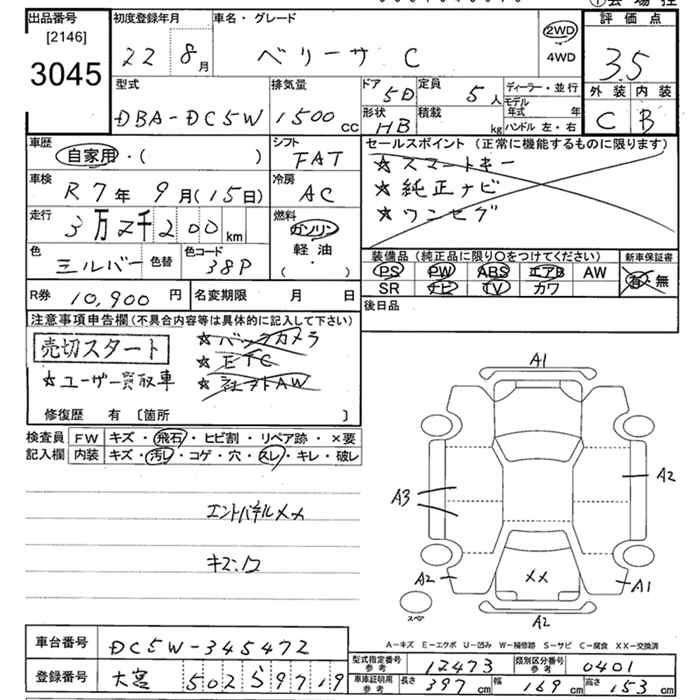 出品番号
[2146]
3045
初度登録年月
22 8月
車名・グレード
ベリーサ C
2WD
4WD
評価点
3.5
外装 内装
C B
型式
DBA-DC5W
排気量
1500 cc
ドア 5D
形状 HB
定員 5人
積載 kg
ディーラー・並行
モデル年式 年
ハンドル 左・右
車歴
自家用・( )
シフト
FAT
車検
R7年9月(15日)
冷房
AC
走行
3万2千200km
燃料
ガソリン
軽油
( )
色
シルバー
色替
色コード
38P
セールスポイント (正常に機能するものに限ります)
☆スマートキー
☆純正ナビ
☆ワンセグ
装備品 (純正品に限り○をつけてください)
PS PW ABS エアB AW
SR ナビ TV カワ
新車保証書
有・無
R券 10,900円
名変期限 月 日
後日品
注意事項申告欄(不具合内容等は具体的に記入して下さい)
売切スタート
☆ユーザー買取車
☆バックカメラ
☆ETC
☆社外AW
修復歴 有 〔箇所 〕
検査員記入欄
FW キズ・飛石・ヒビ割・リペア跡・×要
内装 キズ・汚レ・コゲ・穴・スレ・キレ・破レ
エンドパネルメメ
A1
A3
A2
A2
XX
A1
スペア
A2
A-キズ E-エクボ U-凹み W-補修跡 S-サビ C-腐食 XX-交換済
車台番号
DC5W-345472
登録番号
大宮 502 ら 9719
型式指定番号 参考
12473
類別区分番号 参考
0401
車庫証明用 参考
長さ 397cm 幅 169cm 高さ 153cm